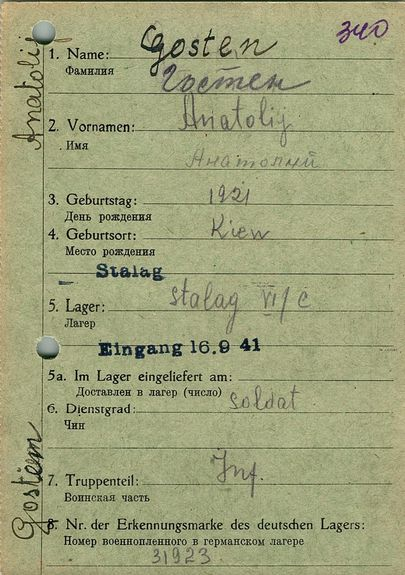 340
1. Name: Gosten
Фамилия Гостен
2. Vornamen: Anatolij
Имя Анатолий
3. Geburtstag: 1921
День рождения
4. Geburtsort: Kiew
Место рождения
Stalag
5. Lager: Stalag VI/C
Лагер
Eingang 16.9 41
5a. Im Lager eingeliefert am:
Доставлен в лагер (число)
6. Dienstgrad: Soldat
Чин
7. Truppenteil: Inf.
Воинская часть
8. Nr. der Erkennungsmarke des deutschen Lagers:
Номер военнопленного в германском лагере
31923
Anatolij
Gostem